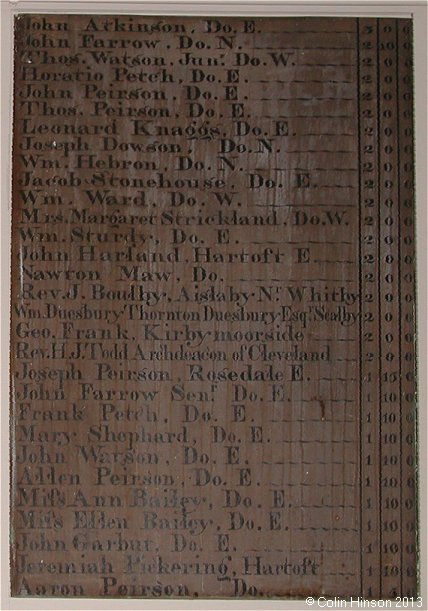 John Atkinson, Do. E. 3 0 0
John Farrow, Do. N. 2 10 0
Thos. Watson, Junr. Do. W. 2 0 0
Horatio Petch, Do. E. 2 0 0
John Peirson, Do. E. 2 0 0
Thos. Peirson, Do. E. 2 0 0
Leonard Knaggs, Do. E. 2 0 0
Joseph Dowson, Do. N. 2 0 0
Wm. Hebron, Do. N. 2 0 0
Jacob Stonehouse, Do. E. 2 0 0
Wm. Ward, Do. W. 2 0 0
Mrs. Margaret Strickland, Do. W. 2 0 0
Wm. Sturdy, Do. E. 2 0 0
John Harland, Hartoft E. 2 0 0
Nawton Maw, Do. 2 0 0
Rev. J. Boulby, Aislaby Nr. Whitby 2 0 0
Wm. Duesbury Thornton Duesbury Esqr. Scalby 2 0 0
Geo. Frank, Kirby-moorside 2 0 0
Rev. H. J. Todd Archdeacon of Cleveland 2 0 0
Joseph Peirson, Rosedale E. 1 15 0
John Farrow Senr. Do. E. 1 10 0
Frank Petch, Do. E. 1 10 0
Mary Shephard, Do. E. 1 10 0
John Watson, Do. E. 1 10 0
Allen Peirson, Do. E. 1 10 0
Miſs Ann Bailey, Do. E. 1 10 0
Miſs Ellen Bailey, Do. E. 1 10 0
John Garbut, Do. E. 1 10 0
Jeremiah Pickering, Hartoft 1 10 0
Aaron Peirson, Do.
© Colin Hinson 2013